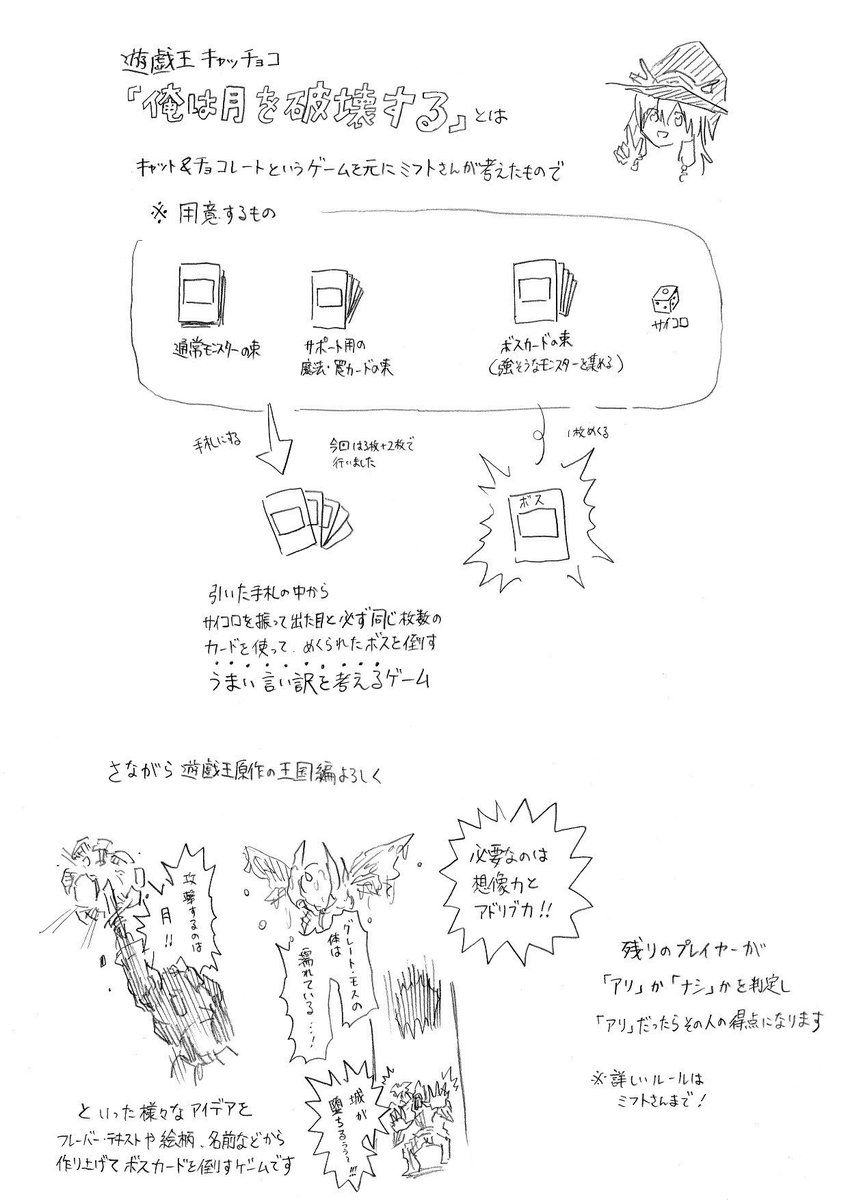 遊戯王 キャッチョコ
「俺は月を破壊する」とは
キャット&チョコレートというゲームを元にミフトさんが考えたもので
※ 用意するもの
通常モンスターの束
サポート用の
魔法・罠カードの束
ボスカードの束
(強そうなモンスターを集める)
サイコロ
手札にする
今回は3枚+2枚で
行いました
1枚めくる
ボス
引いた手札の中から
サイコロを振って出た目と必ず同じ枚数の
カードを使って、めくられたボスを倒す
うまい言い訳を考えるゲーム
さながら遊戯王原作の王国編よろしく
攻撃するのは
月!!
グレート・モスの
体は
濡れている…!
必要なのは
想像力と
アドリブ力!!
城が
堕ちるぅぅぅ!!!
残りのプレイヤーが
「アリ」か「ナシ」かを判定し
「アリ」だったらその人の得点になります
※詳しいルールは
ミフトさんまで!
といった様々なアイデアを
フレーバー・テキストや絵柄、名前などから
作り上げてボスカードを倒すゲームです